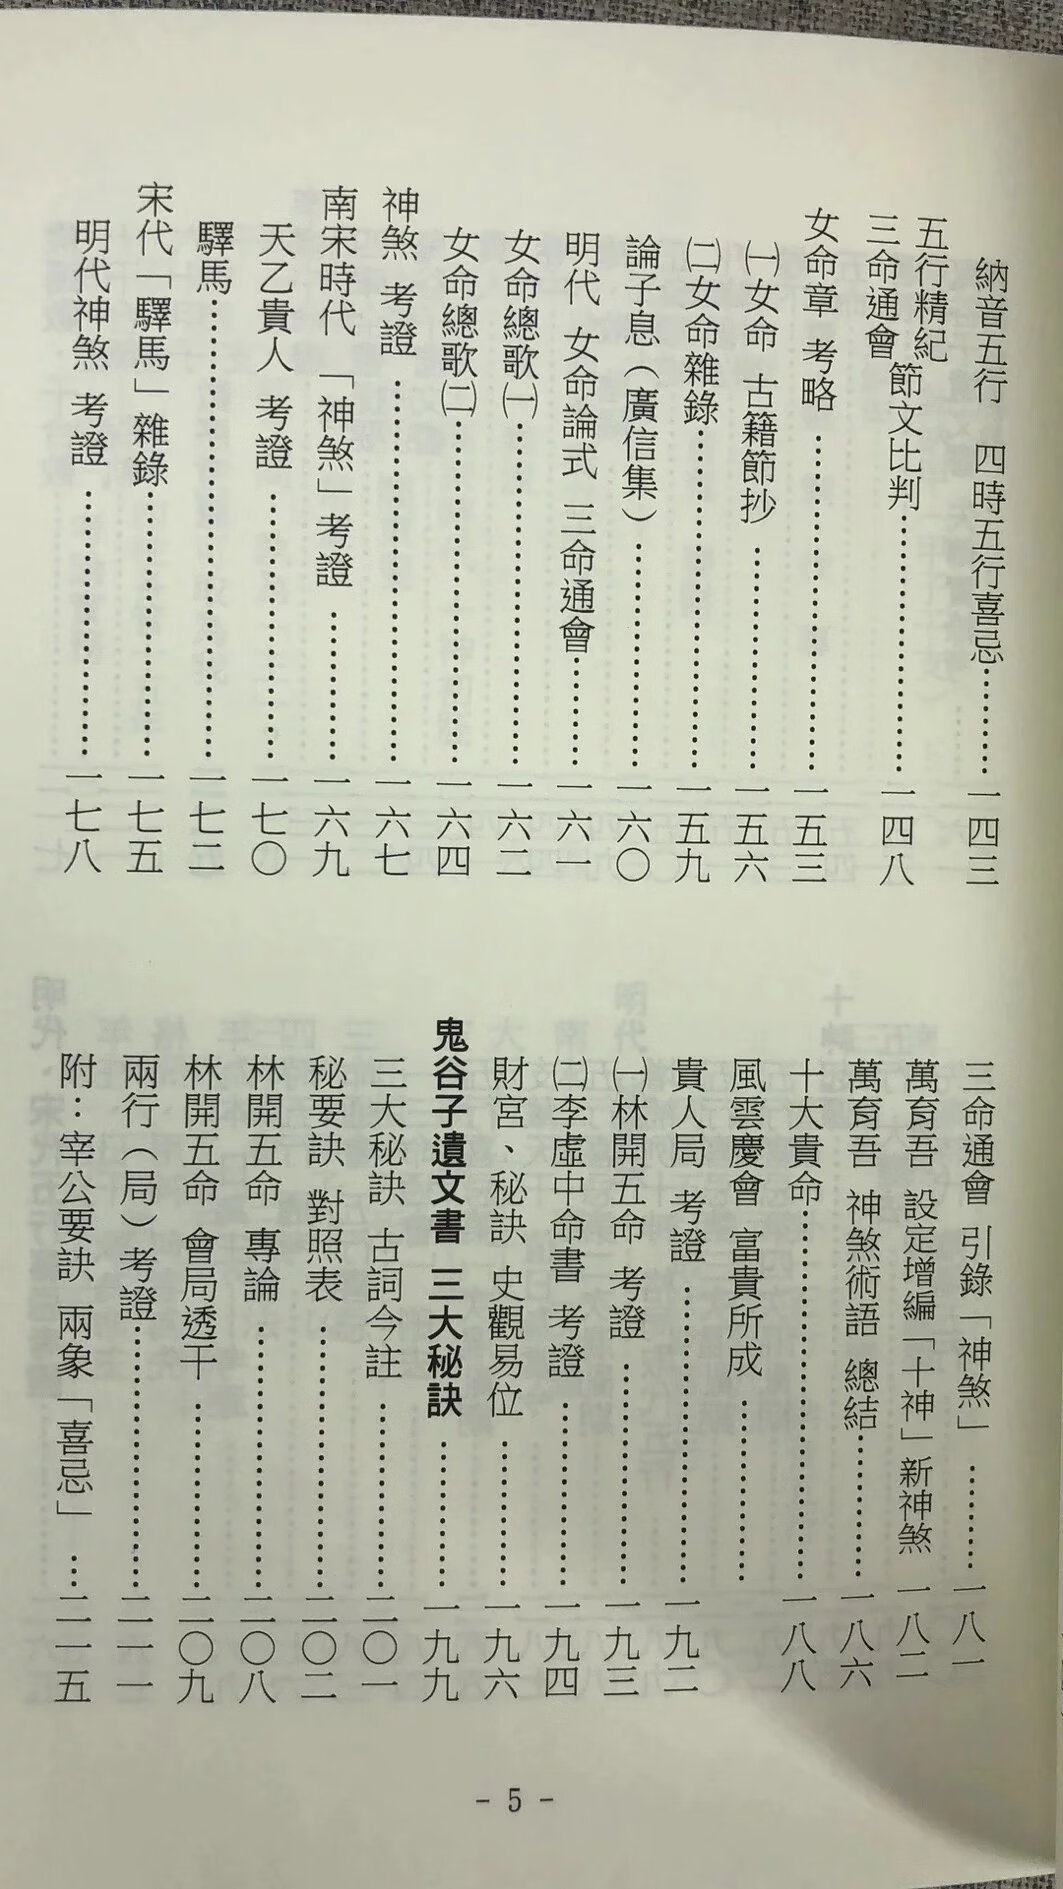 納音五行　四時五行喜忌………一四三
五行精紀
三命通會
節文比判………一四八
女命章　考略………一五三
㈠女命　古籍節抄………一五六
㈡女命雜錄………一五九
論子息（廣信集）………一六〇
明代　女命論式　三命通會………一六一
女命總歌㈠………一六二
女命總歌㈡………一六四
神煞　考證………一六七
南宋時代　「神煞」考證………一六九
天乙貴人　考證………一七〇
驛馬………一七二
宋代「驛馬」雜錄………一七五
明代神煞　考證………一七八
三命通會　引錄「神煞」………一八一
萬育吾　設定增編「十神」新神煞　一八二
萬育吾　神煞術語　總結………一八六
十大貴命………一八八
風雲慶會　富貴所成………
貴人局　考證………一九二
㈠林開五命　考證………一九三
㈡李虛中命書　考證………一九四
財宮、秘訣　史觀易位………一九六
鬼谷子遺文書　三大秘訣………一九九
三大秘訣　古詞今註………二〇一
秘要訣　對照表………二〇二
林開五命　專論………二〇八
林開五命　會局透干………二〇九
兩行（局）考證………二一一
附：宰公要訣　兩象「喜忌」…二一五
- 5 -